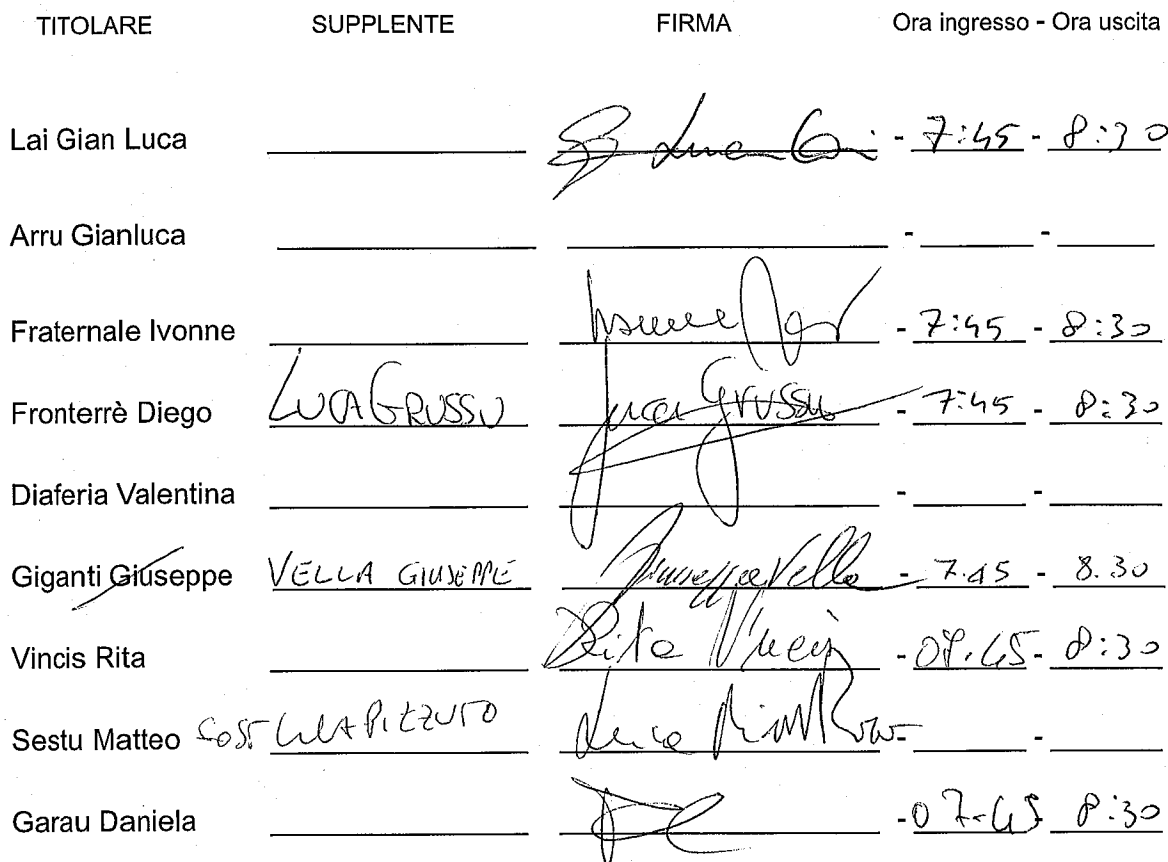 TITOLARE SUPPLENTE FIRMA Ora ingresso - Ora uscita
Lai Gian Luca - 7:45 - 8:30
Arru Gianluca - -
Fraternale Ivonne - 7:45 - 8:30
Fronterrè Diego LUCA GRUSSU Luca Grussu - 7:45 - 8:30
Diaferia Valentina - -
Giganti Giuseppe VELLA GIUSEPPE Giuseppe Vella - 7.45 - 8.30
Vincis Rita Rita Vincis - 07.45 - 8:30
Sestu Matteo PIZZUTO - -
Garau Daniela - 07-45 8:30